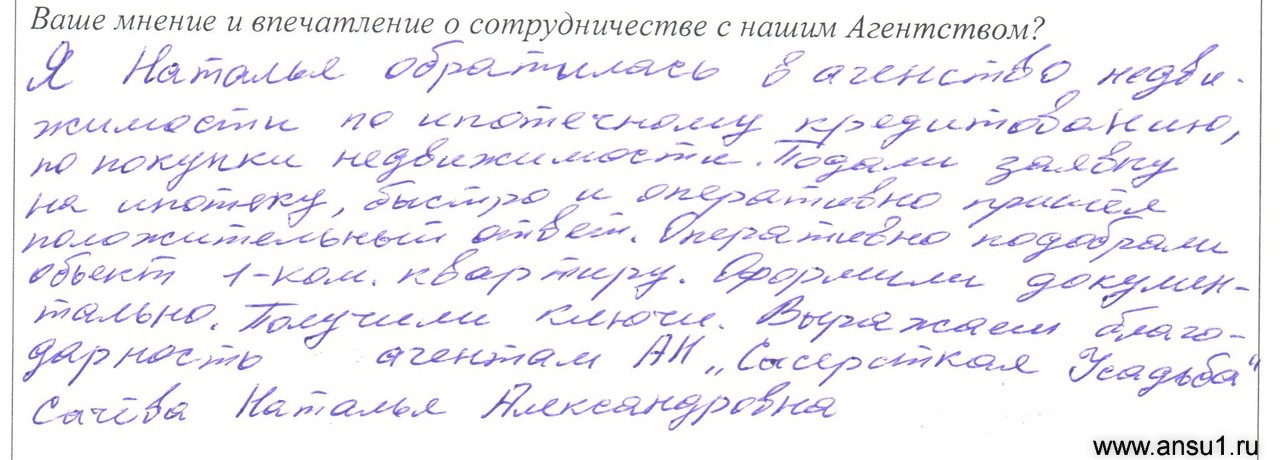 Ваше мнение и впечатление о сотрудничестве с нашим Агентством?
Я Наталья обратилась в агенство недви-
жимости по ипотечному кредитованию,
по покупки недвижимости. Подали заявку
на ипотеку, быстро и оперативно пришёл
положительный ответ. Оперативно подобрали
объект 1-ком. квартиру. Оформили докумен-
тально. Получили ключи. Выражаем благо-
дарность агентам АН „Сысертская Усадьба"
Наталья Александровна
www.ansu1.ru